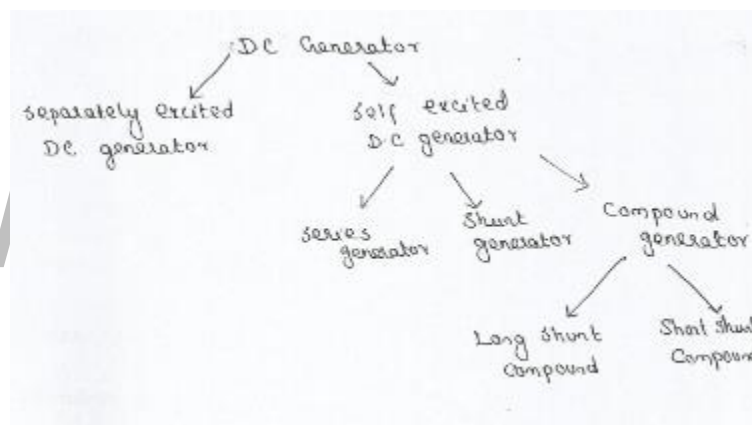 DC Generator
separately excited
DC generator
self excited
DC generator
series
generator
Shunt
generator
Compound
generator
Long Shunt
Compound
Short Shunt
Compoun